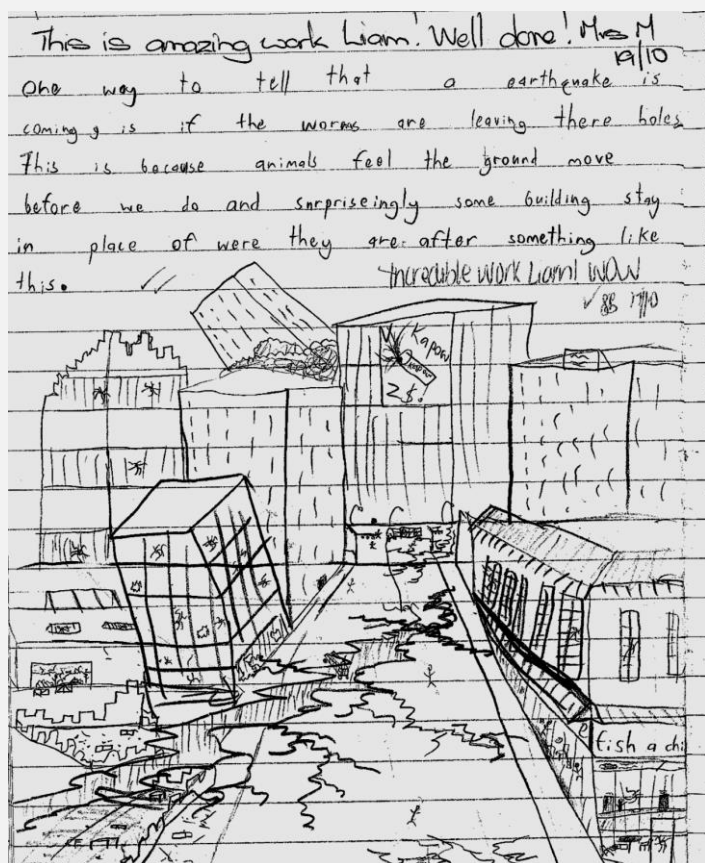 This is amazing work Liam! Well done! Mrs M
19/10
One way to tell that a earthquake is
coming is if the worms are leaving there holes
This is because animals feel the ground move
before we do and surpriseingly some building stay
in place of were they are. after something like
this.
Incredible work Liam! WOW
17/10
Kapow
2$.
fish a chi